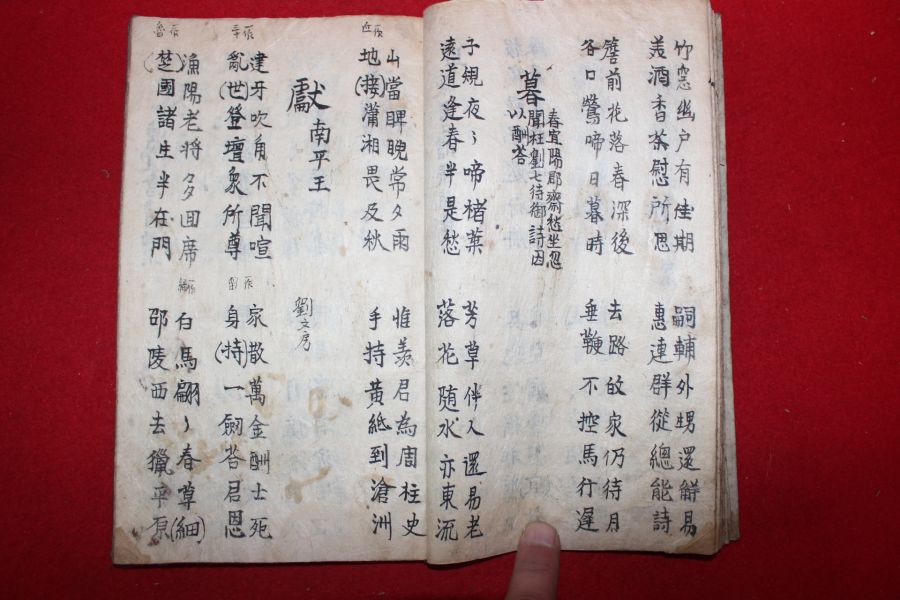 竹窓幽户有佳期
美酒香茶慰所思
嗣輔外甥還解易
惠連群從總能詩
簷前花落春深後
各口鶯啼日暮時
去路 泉仍待月
垂鞭不控馬行遲
暮
春宜陽郡齋愁坐忽
聞枉劉七待御詩因
以酬荅
子規夜〻啼楮葉
遠道逢春半是愁
芳草伴人還易老
落花随水亦東流
山當睥睨常夕雨
地(接)瀟湘畏及秋
惟羨君為周柱史
手持黃紙到滄洲
獻南平王
劉文房
建牙吹角不聞喧
亂(世)登壇衆所尊
家散萬金酬士死
身(持)一劒荅君恩
漁陽老將夕回席
(楚)國諸生半在門
白馬翩〻春尊(細)
邵陵西去獵平原